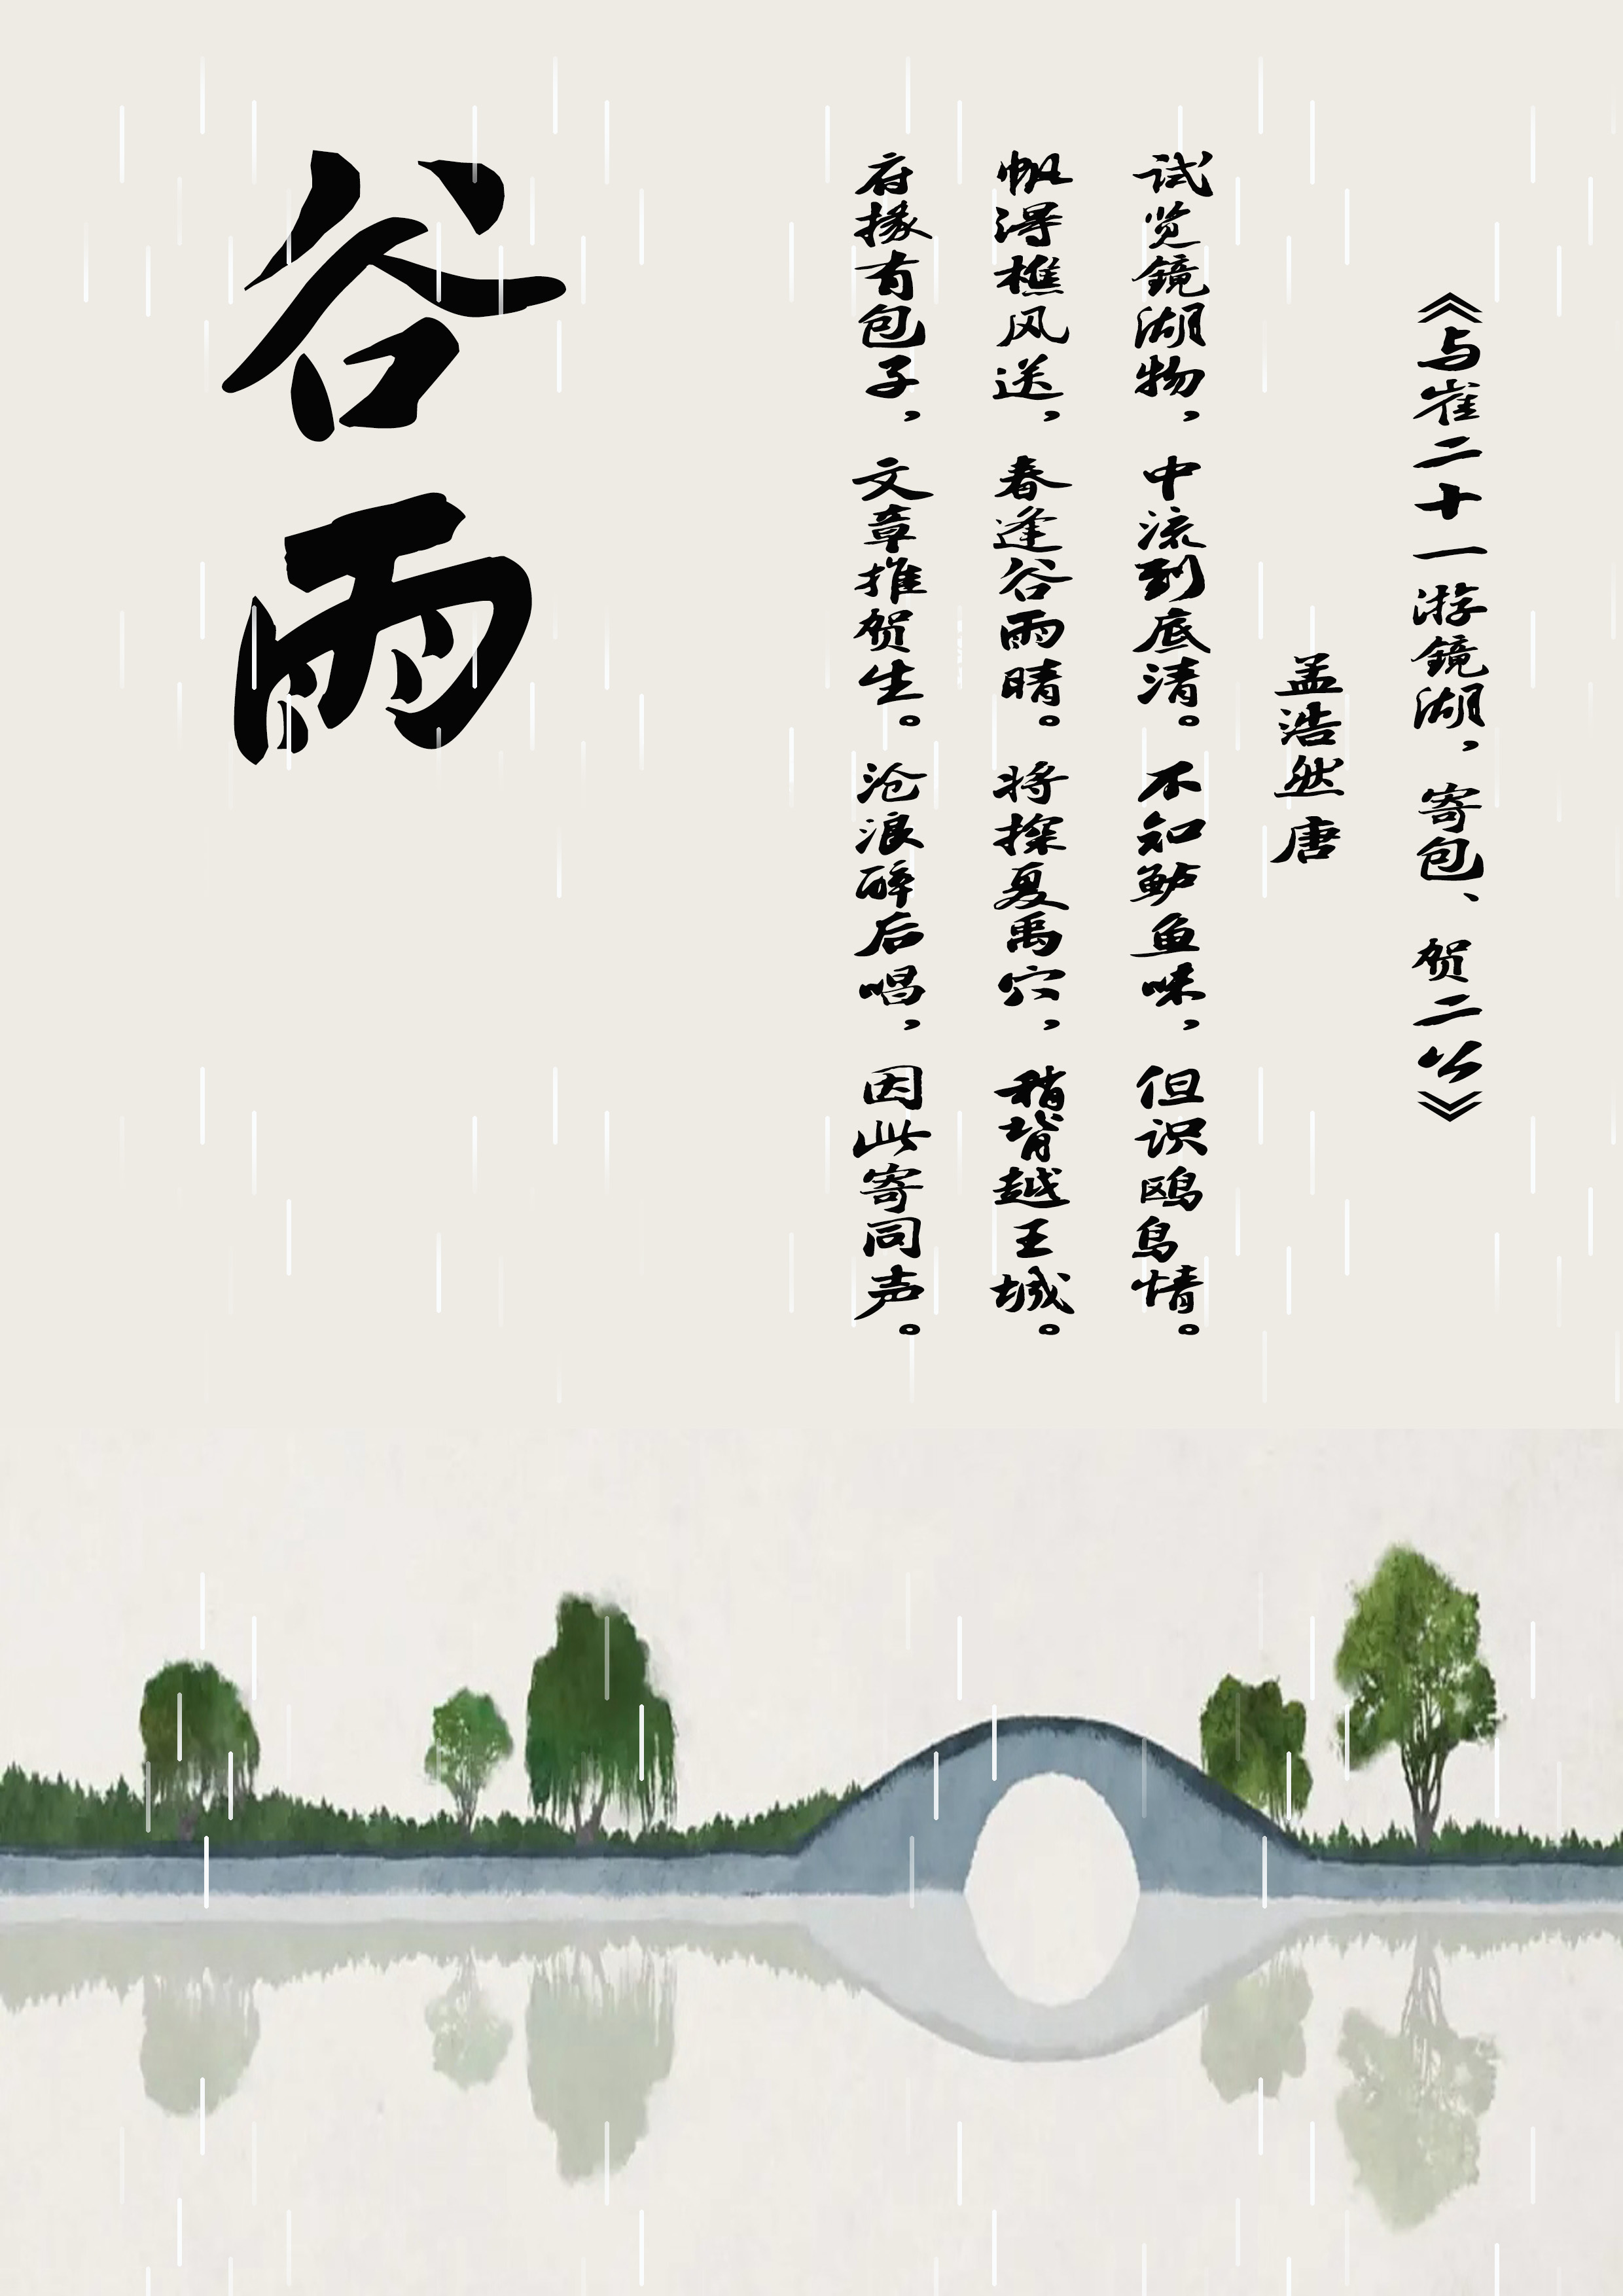 《与崔二十一游镜湖，寄包、贺二公》
孟浩然 唐
试览镜湖物，中流到底清。不知鲈鱼味，但识鸥鸟情。
帆得樵风送，春逢谷雨晴。将探夏禹穴，稍背越王城。
府掾有包子，文章推贺生。沧浪醉后唱，因此寄同声。
谷雨